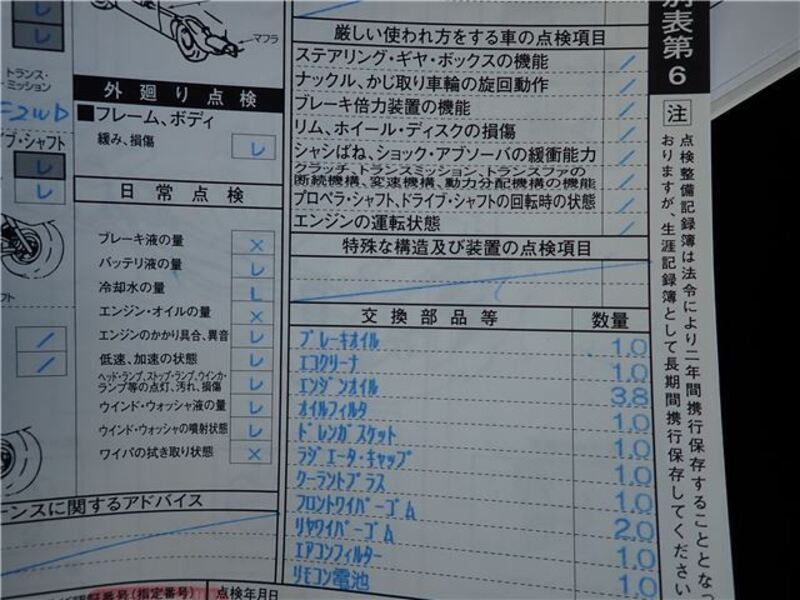 マフラ
トランス・
ミッション
外廻り点検
■フレーム、ボディ
緩み、損傷
レ
日常点検
ブレーキ液の量 ×
バッテリ液の量 レ
冷却水の量 レ
エンジン・オイルの量 ×
エンジンのかかり具合、異音 レ
低速、加速の状態 レ
ヘッド・ランプ、ストップ・ランプ、ウインカ・
ランプ等の点灯、汚れ、損傷 レ
ウインド・ウォッシャ液の量 レ
ウインド・ウォッシャの噴射状態 レ
ワイパの拭き取り状態 ×
ンスに関するアドバイス
番号(指定番号)
点検年月日
厳しい使われ方をする車の点検項目
ステアリング・ギヤ・ボックスの機能 /
ナックル、かじ取り車輪の旋回動作 /
ブレーキ倍力装置の機能 /
リム、ホイール・ディスクの損傷 /
シャシばね、ショック・アブソーバの緩衝能力 /
クラッチ、トランスミッション、トランスファの
断続機構、変速機構、動力分配機構の機能 /
プロペラ・シャフト、ドライブ・シャフトの回転時の状態 /
エンジンの運転状態 /
特殊な構造及び装置の点検項目
交換部品等 数量
ブレーキオイル 1.0
エコクリーナ 1.0
エンジンオイル 3.8
オイルフィルタ 1.0
ドレンガスケット 1.0
ラジエータ・キャップ 1.0
クーラントプラス 1.0
フロントワイパーゴム 2.0
リヤワイパーゴム 1.0
エアコンフィルター 1.0
リモコン電池
別表第6
注
点検整備記録簿は法令により二年間携行保存することとなっ
おりますが、生涯記録簿として長期間携行保存してください